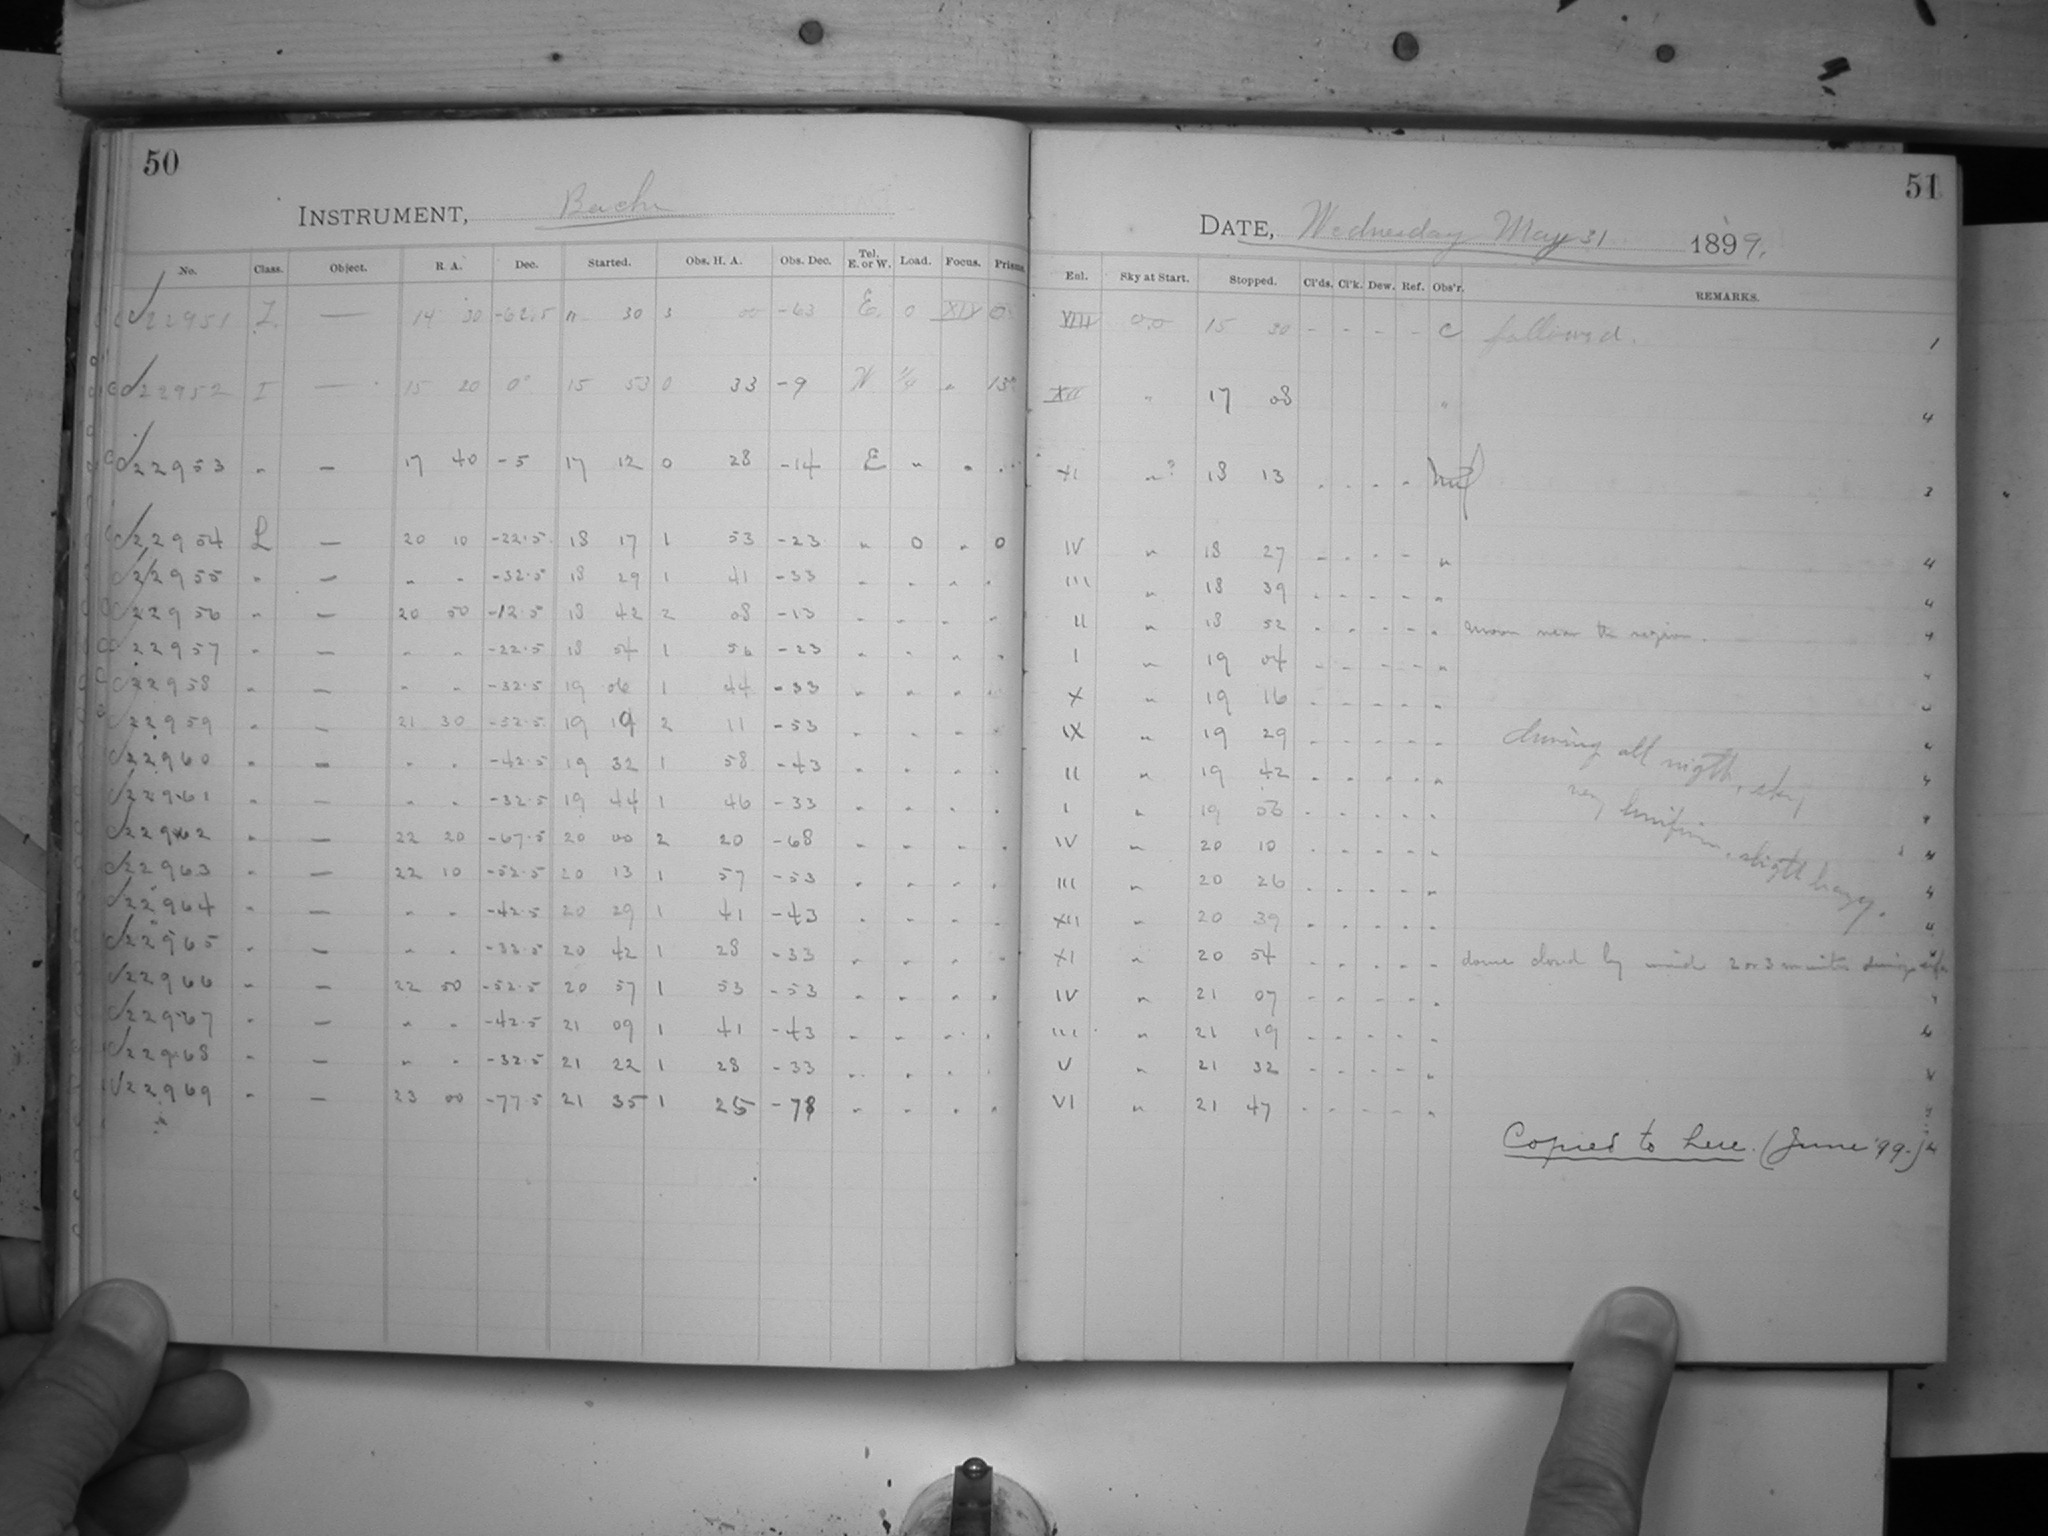 50
INSTRUMENT, Bache
No. Class. Object. R. A. Dec. Started. Obs. H. A. Obs. Dec. Tel. E. or W. Load. Focus. Prisms.
22951 I — 14 30 -62.5 11 30 3 00 -63 E. 0 XIV 0
22952 I — 15 20 0° 15 53 0 33 -9 W 1/4 " 15°
22953 " — 17 40 -5 17 12 0 28 -14 E " " "
22954 L — 20 10 -22.5 18 17 1 53 -23 " 0 " 0
22955 " — " " -32.5 18 29 1 41 -33 " " " "
22956 " — 20 50 -12.5 18 42 2 08 -13 " " " "
22957 " — " " -22.5 18 54 1 56 -23 " " " "
22958 " — " " -32.5 19 06 1 44 -33 " " " "
22959 " — 21 30 -52.5 19 19 2 11 -53 " " " "
22960 " — " " -42.5 19 32 1 58 -43 " " " "
22961 " — " " -32.5 19 44 1 46 -33 " " " "
22962 " — 22 20 -67.5 20 00 2 20 -68 " " " "
22963 " — 22 10 -52.5 20 13 1 57 -53 " " " "
22964 " — " " -42.5 20 29 1 41 -43 " " " "
22965 " — " " -32.5 20 42 1 28 -33 " " " "
22966 " — 22 50 -52.5 20 57 1 53 -53 " " " "
22967 " — " " -42.5 21 09 1 41 -43 " " " "
22968 " — " " -32.5 21 22 1 28 -33 " " " "
22969 " — 23 00 -77.5 21 35 1 25 -78 " " " "
51
DATE, Wednesday May 31 1899.
Enl. Sky at Start. Stopped. Cl'ds. Cl'k. Dew. Ref. Obs'r. REMARKS.
XIII 0.0 15 30 - - - - C followed. 1
XII " 17 08 " 4
XI "? 18 13 - - - - 3
IV " 18 27 - - - - " 4
III " 18 39 - - - - " 4
II " 18 52 - - - - " moon near the region. 4
I " 19 04 - - - - "
X " 19 16 - - - - "
IX " 19 29 - - - - " 4
II " 19 42 - - - - " 4
I " 19 56 - - - - "
IV " 20 10 - - - - " 4
III " 20 26 - - - - " 4
XII " 20 39 - - - - " 4
XI " 20 54 - - - - " dome closed by wind 2 or 3 minutes
IV " 21 07 - - - - "
III " 21 19 - - - - "
V " 21 32 - - - - "
VI " 21 47 - - - - "
during all nigth, sky
very uniform, sligth hazy.
Copied to here. (June '99.)